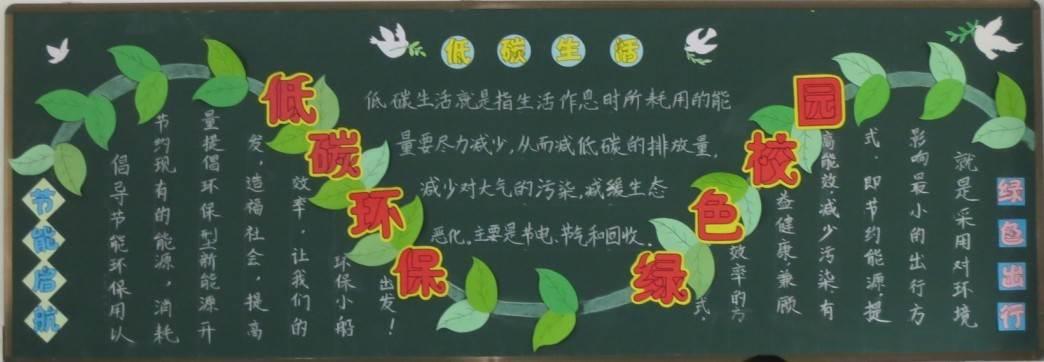 低碳生活
低碳环保绿色校园
节能启航
倡导节能环保用以
节约现有的能源,消耗
量提倡环保型新能源开
发,造福社会,提高
效率,让我们的
环保小船
出发!
低碳生活就是指生活作息时所耗用的能
量要尽力减少,从而减低碳的排放量,
减少对大气的污染,减缓生态
恶化。主要是节电、节气和回收。
绿色出行
就是采用对环境
影响最小的出行方
式.即节约能源,提
高能效减少污染有
益健康兼顾
效率的方
式.